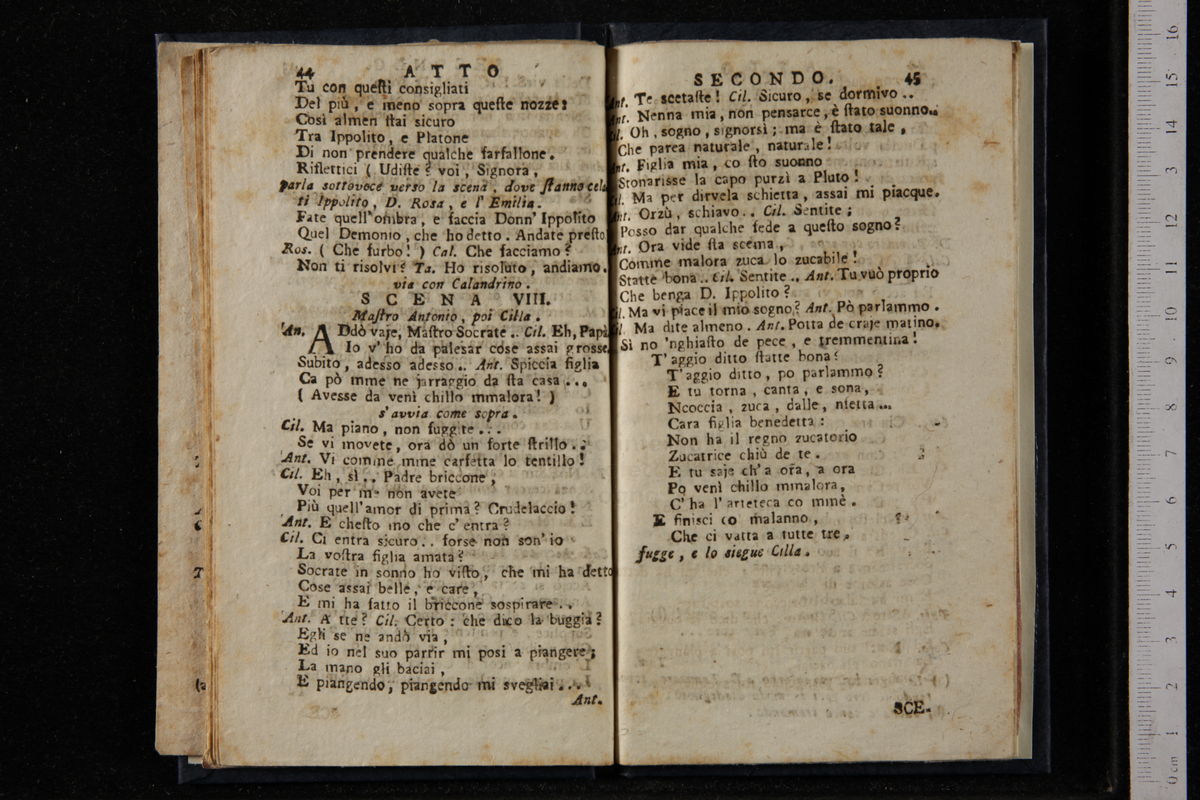 44 ATTO
Tu con questi consigliati
Del più, e meno sopra queste nozze:
Così almen stai sicuro
Tra Ippolito, e Platone
Di non prendere qualche farfallone.
Riflettici ( Udiste? voi, Signora,
parla sottovoce verso la scena, dove stanno cela
ti Ippolito, D. Rosa, e l'Emilia.
Fate quell'ombra, e faccia Donn'Ippolito
Quel Demonio, che ho detto. Andate presto
Ros. ( Che furbo! ) Cal. Che facciamo?
Non ti risolvi? Ta. Ho risoluto, andiamo.
via con Calandrino.
SCENA VIII.
Mastro Antonio, poi Cilla.
An. ADdò vaje, Mastro Socrate.. Cil. Eh, Papà
Io v'ho da palesar cose assai grosse
Subito, adesso adesso.. Ant. Spiccia figlia
Ca pò mme ne jarraggio da sta casa...
( Avesse da venì chillo mmalora! )
s'avvia come sopra.
Cil. Ma piano, non fuggite...
Se vi movete, ora dò un forte strillo..
Ant. Vi comme mme carfetta lo tentillo!
Cil. Eh, sì.. Padre briccone,
Voi per me non avete
Più quell'amor di prima? Crudelaccio!
Ant. E chesto mo che c'entra?
Cil. Ci entra sicuro.. forse non son'io
La vostra figlia amata?
Socrate in sonno ho visto, che mi ha detto
Cose assai belle, e care,
E mi ha fatto il briccone sospirare..
Ant. A tte? Cil. Certo: che dico la buggia?
Egli se ne andò via,
Ed io nel suo partir mi posi a piangere;
La mano gli baciai,
E piangendo, piangendo mi svegliai...
Ant.
SECONDO. 45
Ant. Te scetaste! Cil. Sicuro, se dormivo..
Ant. Nenna mia, non pensarce, è stato suonno..
Cil. Oh, sogno, signorsì; ma è stato tale,
Che parea naturale, naturale!
Ant. Figlia mia, co sto suonno
Stonarisse la capo purzì a Pluto!
Cil. Ma per dirvela schietta, assai mi piacque.
Ant. Orzù, schiavo.. Cil. Sentite;
Posso dar qualche fede a questo sogno?
Ant. Ora vide sta scema,
Comme malora zuca lo zucabile!
Statte bona.. Cil. Sentite.. Ant. Tu vuò proprio
Che benga D. Ippolito?
Cil. Ma vi piace il mio sogno? Ant. Pò parlammo.
Cil. Ma dite almeno. Ant. Potta de craje matino.
Sì no 'nghiasto de pece, e tremmentina!
T'aggio ditto statte bona?
T'aggio ditto, po parlammo?
E tu torna, canta, e sona,
Ncoccia, zuca, dalle, nfetta...
Cara figlia benedetta:
Non ha il regno zucatorio
Zucatrice chiù de te.
E tu saje ch'a ora, a ora
Po venì chillo mmalora,
C'ha l'arteteca co mmè.
E finisci co malanno,
Che ci vatta a tutte tre.
fugge, e lo siegue Cilla.
SCE-